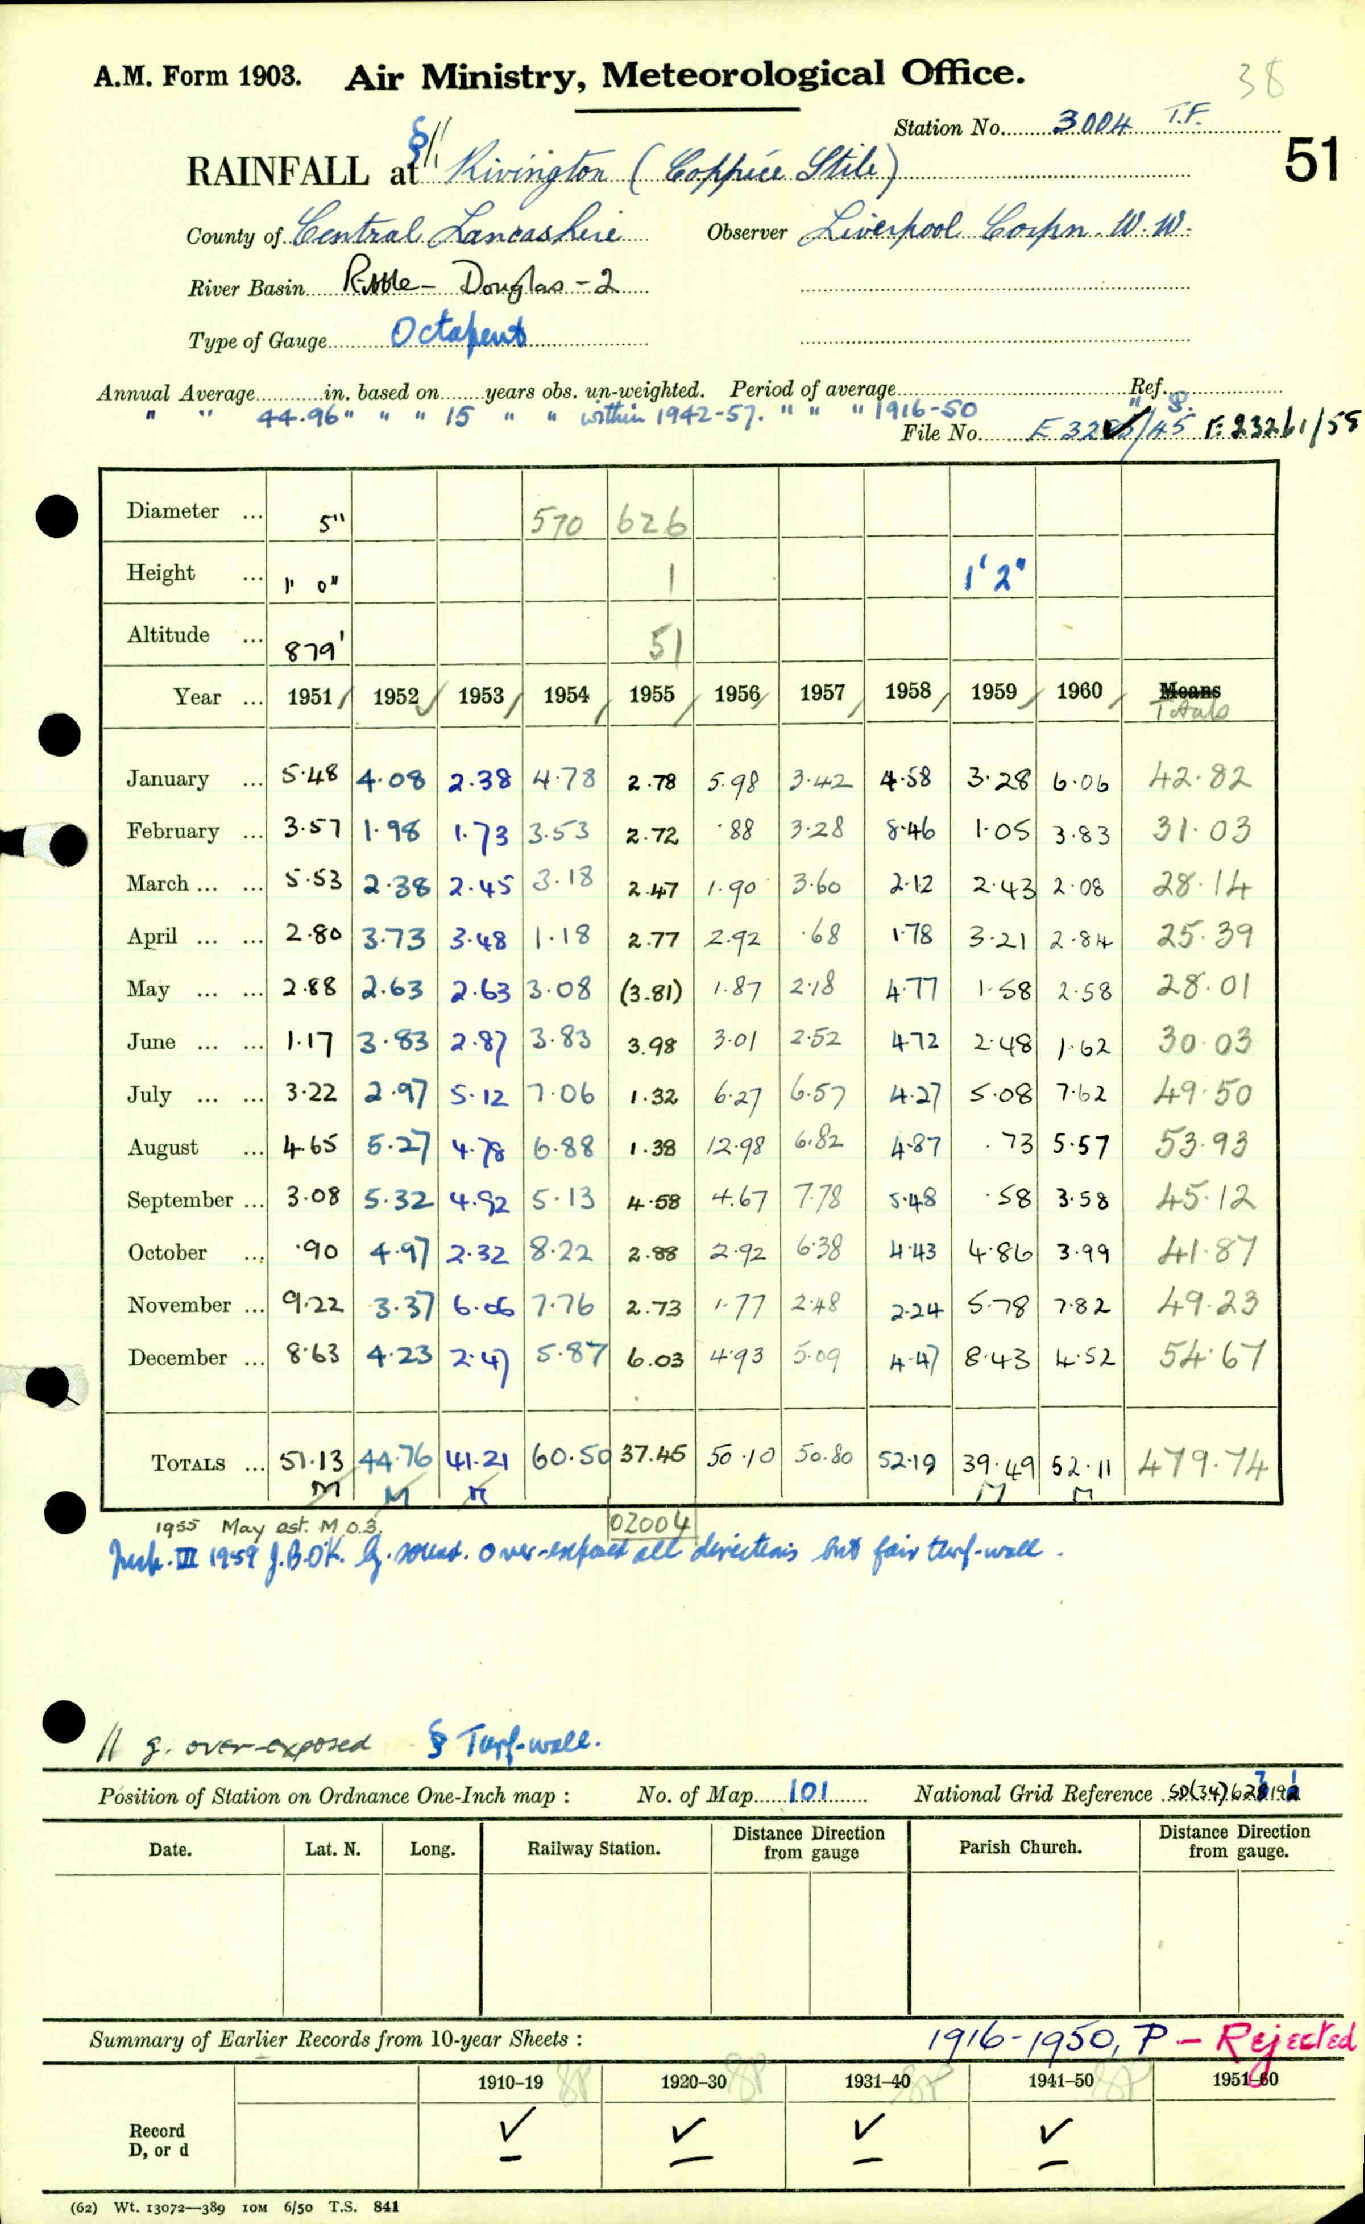 38
A.M. Form 1903. Air Ministry, Meteorological Office.
Station No. 3004 T.F.
51
§ //
RAINFALL at Rivington (Coppice Stile)
County of Central Lancashire Observer Liverpool Corpn. W. W.
River Basin Ribble - Douglas - 2
Type of Gauge Octapent
Annual Average in. based on years obs. un-weighted. Period of average Ref.
" " 44.96" " " 15 " " within 1942-57. " " " 1916-50 " S.
File No. E 3285/45 F. 23261/58
Diameter ... 5" 570 626
Height ... 1' 0" 1 1' 2"
Altitude ... 879' 51
Year ... 1951 1952 1953 1954 1955 1956 1957 1958 1959 1960 Means
Totals
January ... 5.48 4.08 2.38 4.78 2.78 5.98 3.42 4.58 3.28 6.06 42.82
February ... 3.57 1.98 1.73 3.53 2.72 .88 3.28 8.46 1.05 3.83 31.03
March ... ... 5.53 2.38 2.45 3.18 2.47 1.90 3.60 2.12 2.43 2.08 28.14
April ... ... 2.80 3.73 3.48 1.18 2.77 2.92 .68 1.78 3.21 2.84 25.39
May ... ... 2.88 2.63 2.63 3.08 (3.81) 1.87 2.18 4.77 1.58 2.58 28.01
June ... ... 1.17 3.83 2.87 3.83 3.98 3.01 2.52 4.72 2.48 1.62 30.03
July ... ... 3.22 2.97 5.12 7.06 1.32 6.27 6.57 4.27 5.08 7.62 49.50
August ... 4.65 5.27 4.78 6.88 1.38 12.98 6.82 4.87 .73 5.57 53.93
September ... 3.08 5.32 4.92 5.13 4.58 4.67 7.78 5.48 .58 3.58 45.12
October ... .90 4.97 2.32 8.22 2.88 2.92 6.38 4.43 4.86 3.99 41.87
November ... 9.22 3.37 6.06 7.76 2.73 1.77 2.48 2.24 5.78 7.82 49.23
December ... 8.63 4.23 2.47 5.87 6.03 4.93 5.09 4.47 8.43 4.52 54.67
TOTALS ... 51.13 44.76 41.21 60.50 37.45 50.10 50.80 52.19 39.49 52.11 479.74
M M M M M
1955 May est. M.O.3. 02004
Insp. III 1959 J.B.O'K. G. sound. Over-exposed all directions but fair turf-wall.
// g. over-exposed § Turf-wall.
Position of Station on Ordnance One-Inch map : No. of Map 101 National Grid Reference SD(34)
Date. Lat. N. Long. Railway Station. Distance Direction from gauge Parish Church. Distance Direction from gauge.
Summary of Earlier Records from 10-year Sheets : 1916-1950, P - Rejected
1910–19 1920–30 1931–40 1941–50 1951–60
Record ✓ ✓ ✓ ✓
D, or d – – – –
(62) Wt. 13072—389 10M 6/50 T.S. 841